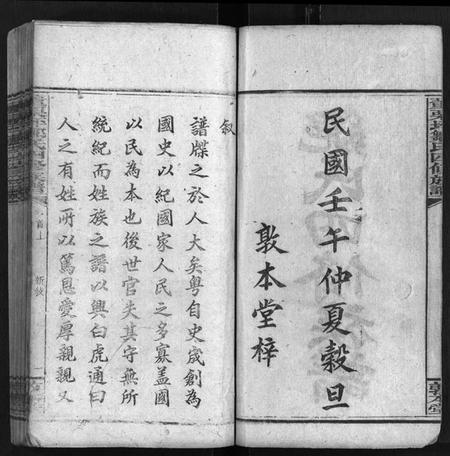 民國壬午仲夏穀旦
敦本堂梓
敘
譜牒之於人大矣粵自史宬創為
國史以紀國家人民之多寡盖國
以民為本也後世官失其守無所
統紀而姓族之譜以興白虎通曰
人之有姓所以篤恩愛厚親親又
氏四修族譜
敦本堂